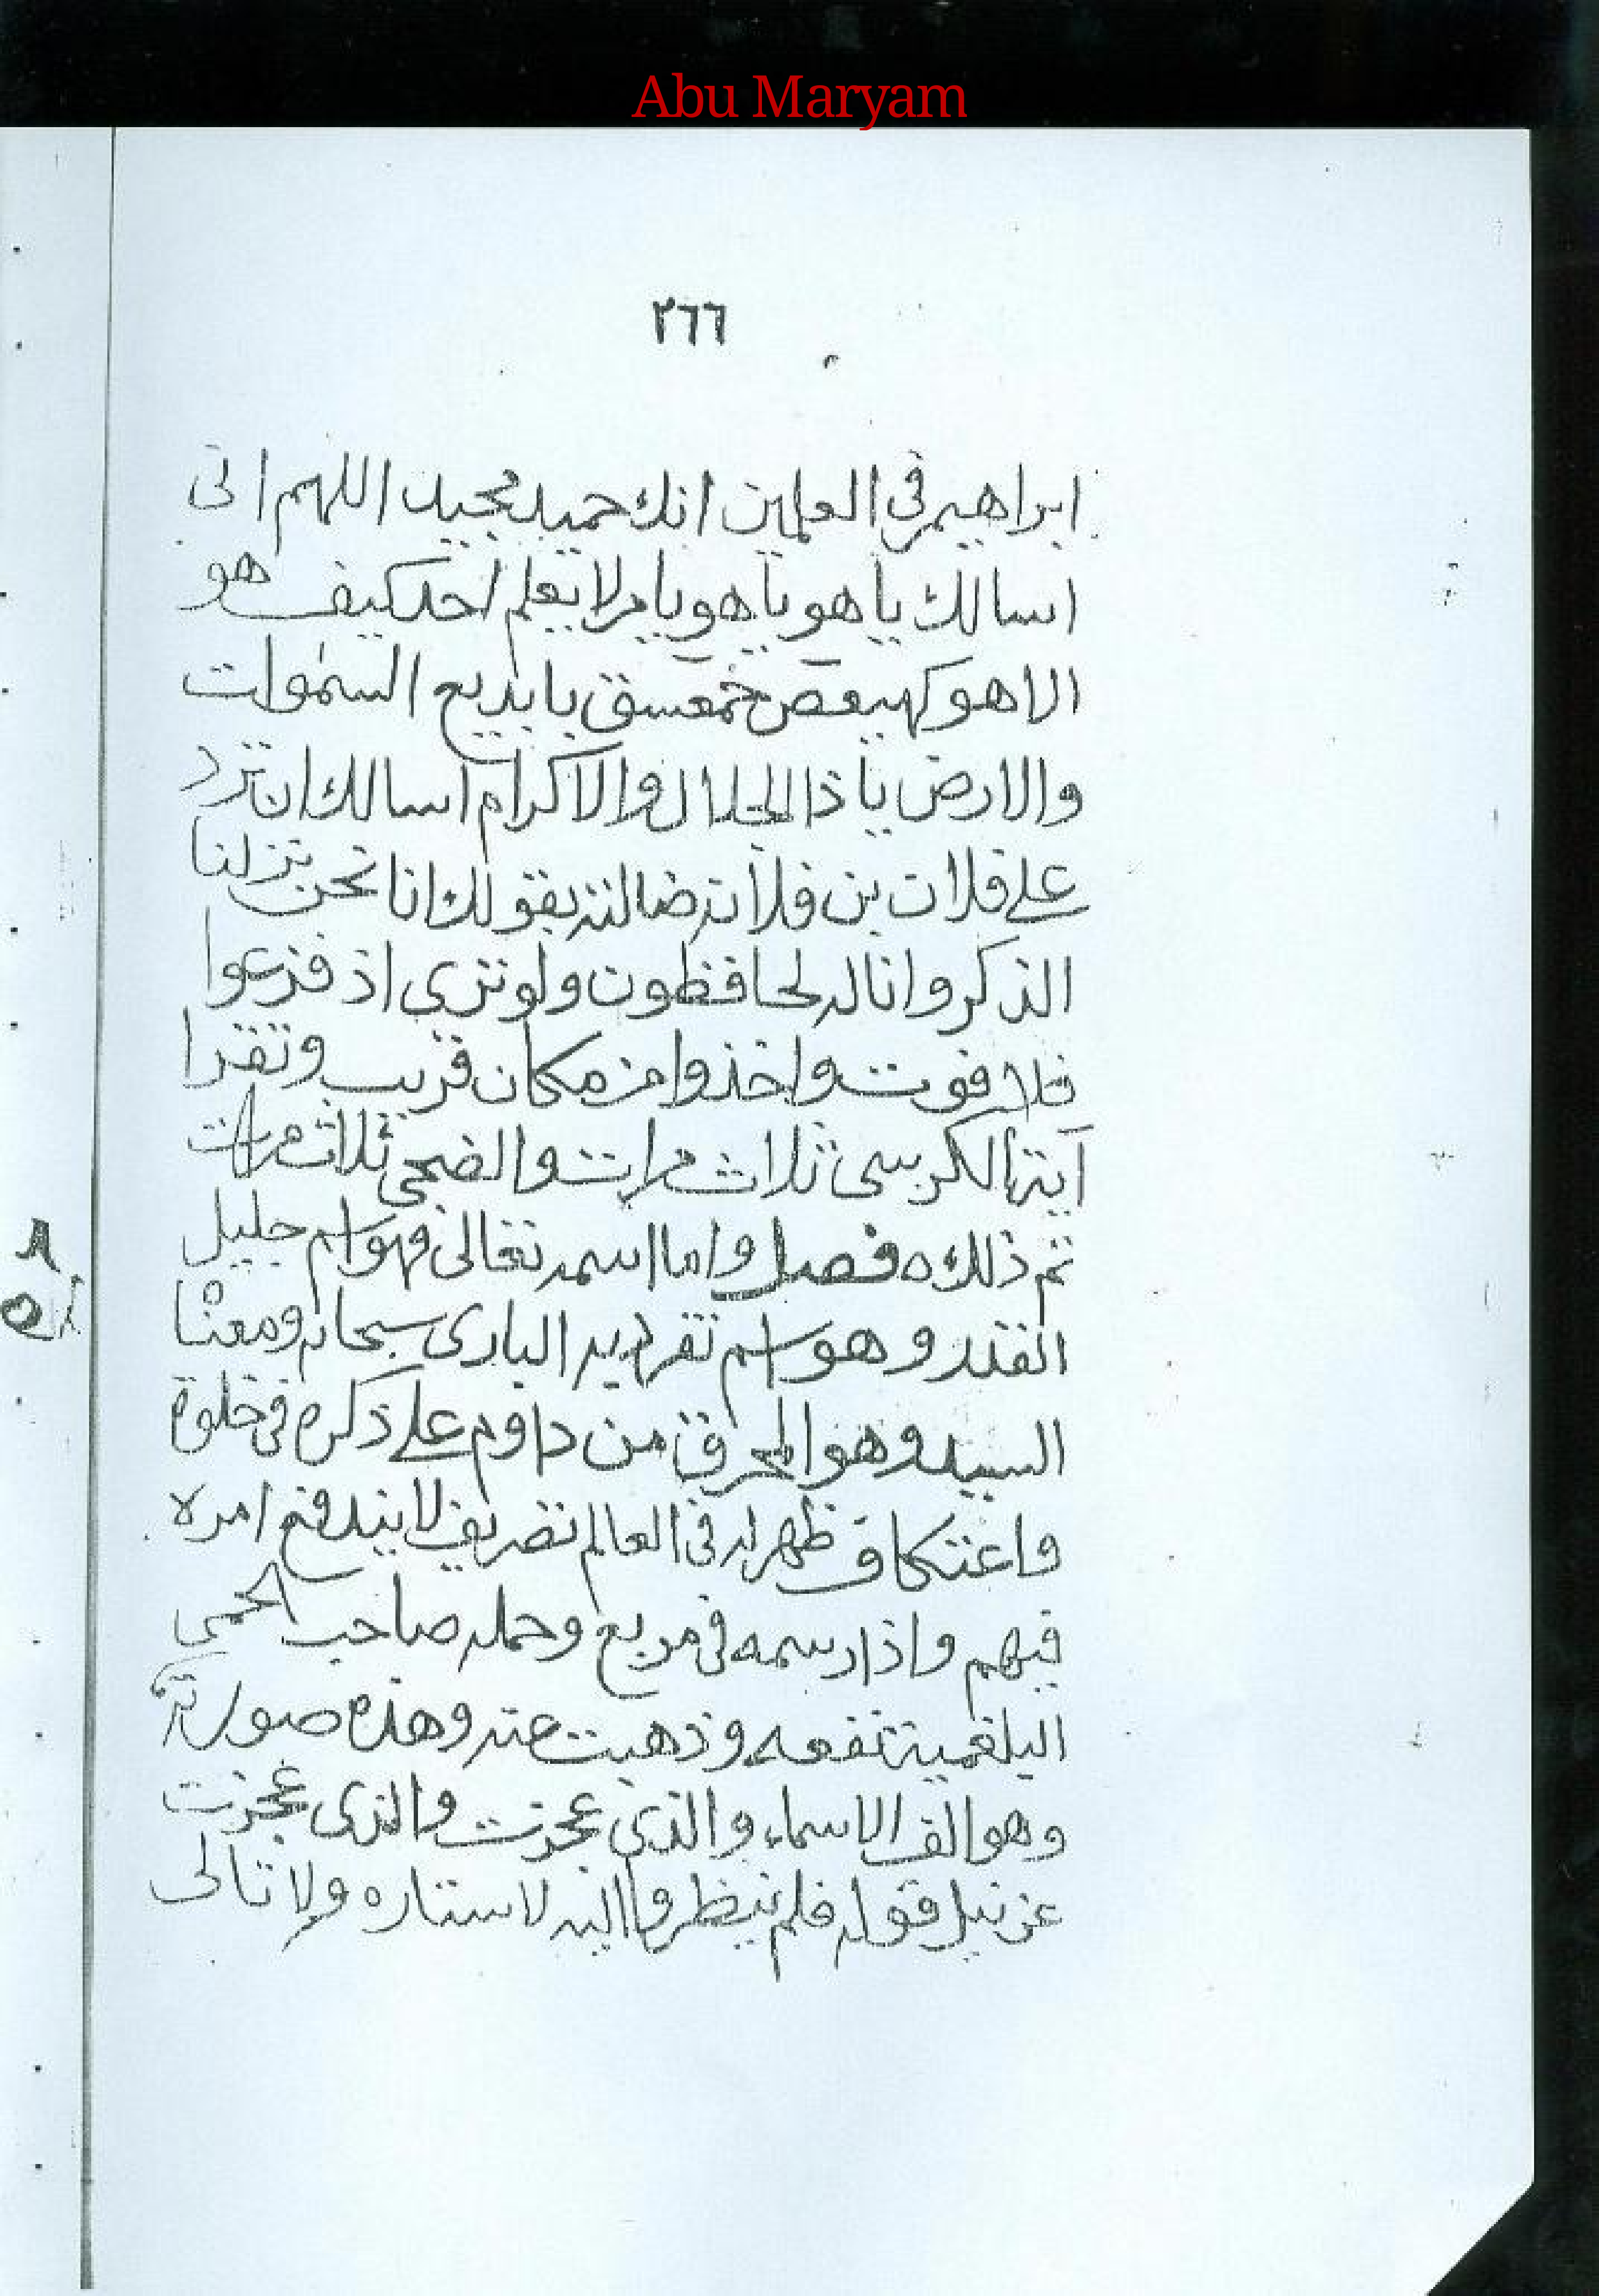 Abu Maryam
٢٦٦
ابراهيم في العلمين انك حميد مجيد اللهم انى
اسالك يا هو يا هو يا من لا يعلم احد كيف هو
الا هو كهيعص حمعسق يا بديع السموات
والارض يا ذا الجلال والاكرام اسالك ان ترد
على فلان بن فلانة ضالته بقولك انا نحن نزلنا
الذكر وانا له لحافظون ولو ترى اذ فزعوا
فلا فوت واخذوا من مكان قريب وتقرا
آية الكرسي ثلاث مرات والضحى ثلاث مرات
تم ذلك ه فصل واما اسمه تعالى فهو اسم جليل
القدر وهو اسم تفريد البارى سبحانه ومعناه
السيد وهو المحرق من داوم على ذكره في خلوة
واعتكاف ظهر له في العالم تصريف لا يندفع امره
فيهم واذا رسمه في مربع وحمله صاحب الحمى
البلغمية نفعه وذهبت عنه وهذه صورته
وهو الف الاسماء والذي عجزت والذى عجزت
عن نيل قوله فلم ينظروا اليه لاستتاره ولا تالى